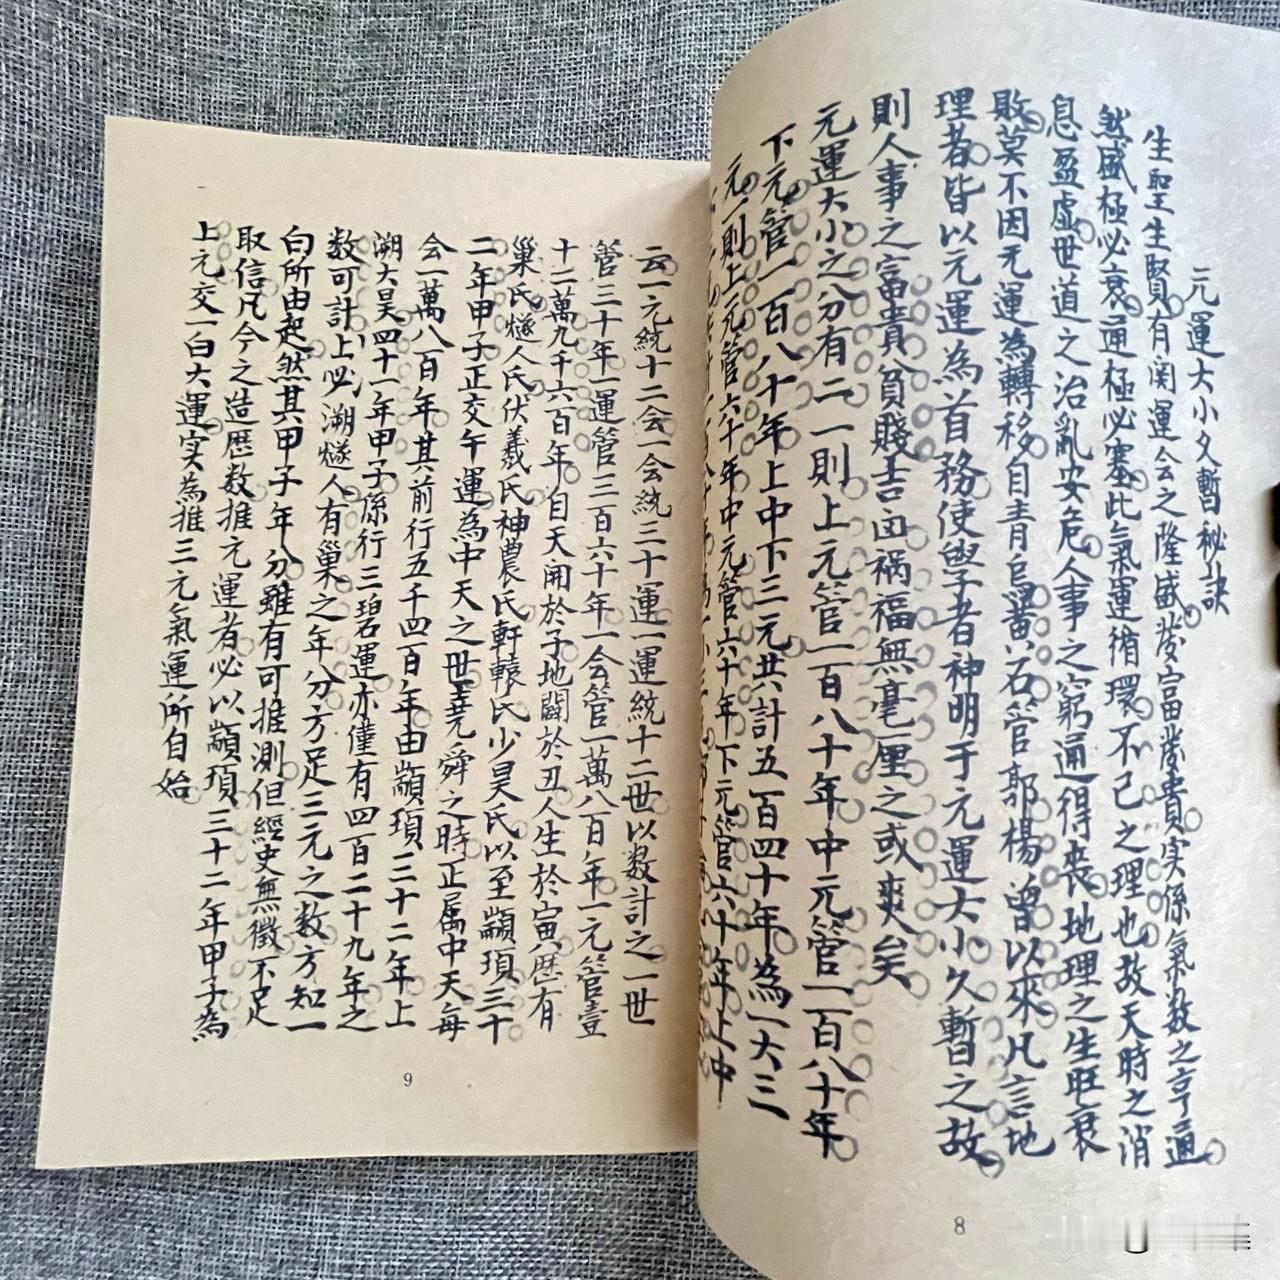 元運大小久暫秘訣
生聖生賢有関運会之隆盛發富發貴实係氣数之亨通
然盛極必衰通極必塞此氣運循環不已之理也故天時之消
息盈虛世道之治亂安危人事之窮通得丧地理之生旺衰
敗莫不因元運為轉移自青烏黃石管郭楊曾以來凡言地
理者皆以元運為首務使學者神明于元運大小久暫之故
則人事之富貴貧賤吉凶祸福無毫厘之或爽矣
元運大小之分有二一則上元管一百八十年中元管一百八十年
下元管一百八十年上中下三元共計五百四十年為一大三
元一則上元管六十年中元管六十年下元管六十年上中
8
云一元統十二会一会統三十運一運統十二世以数計之一世
管三十年一運管三百六十年一会管一萬八百年一元管壹
十二萬九千六百年自天開於子地闢於丑人生於寅歷有
巢氏燧人氏伏羲氏神農氏軒轅氏少昊氏以至顓頊三十
二年甲子正交午運為中天之世堯舜之時正屬中天每
会一萬八百年其前行五千四百年由顓頊三十二年上
溯大昊四十一年甲子係行三碧運亦僅有四百二十九年之
数可計上必溯燧人有巢之年分方足三元之数方知一
白所由起然其甲子年分雖有可推測但經史無徵不足
取信凡今之造歷数推元運者必以顓頊三十二年甲子為
上元交一白大運实為推三元氣運所自始
9